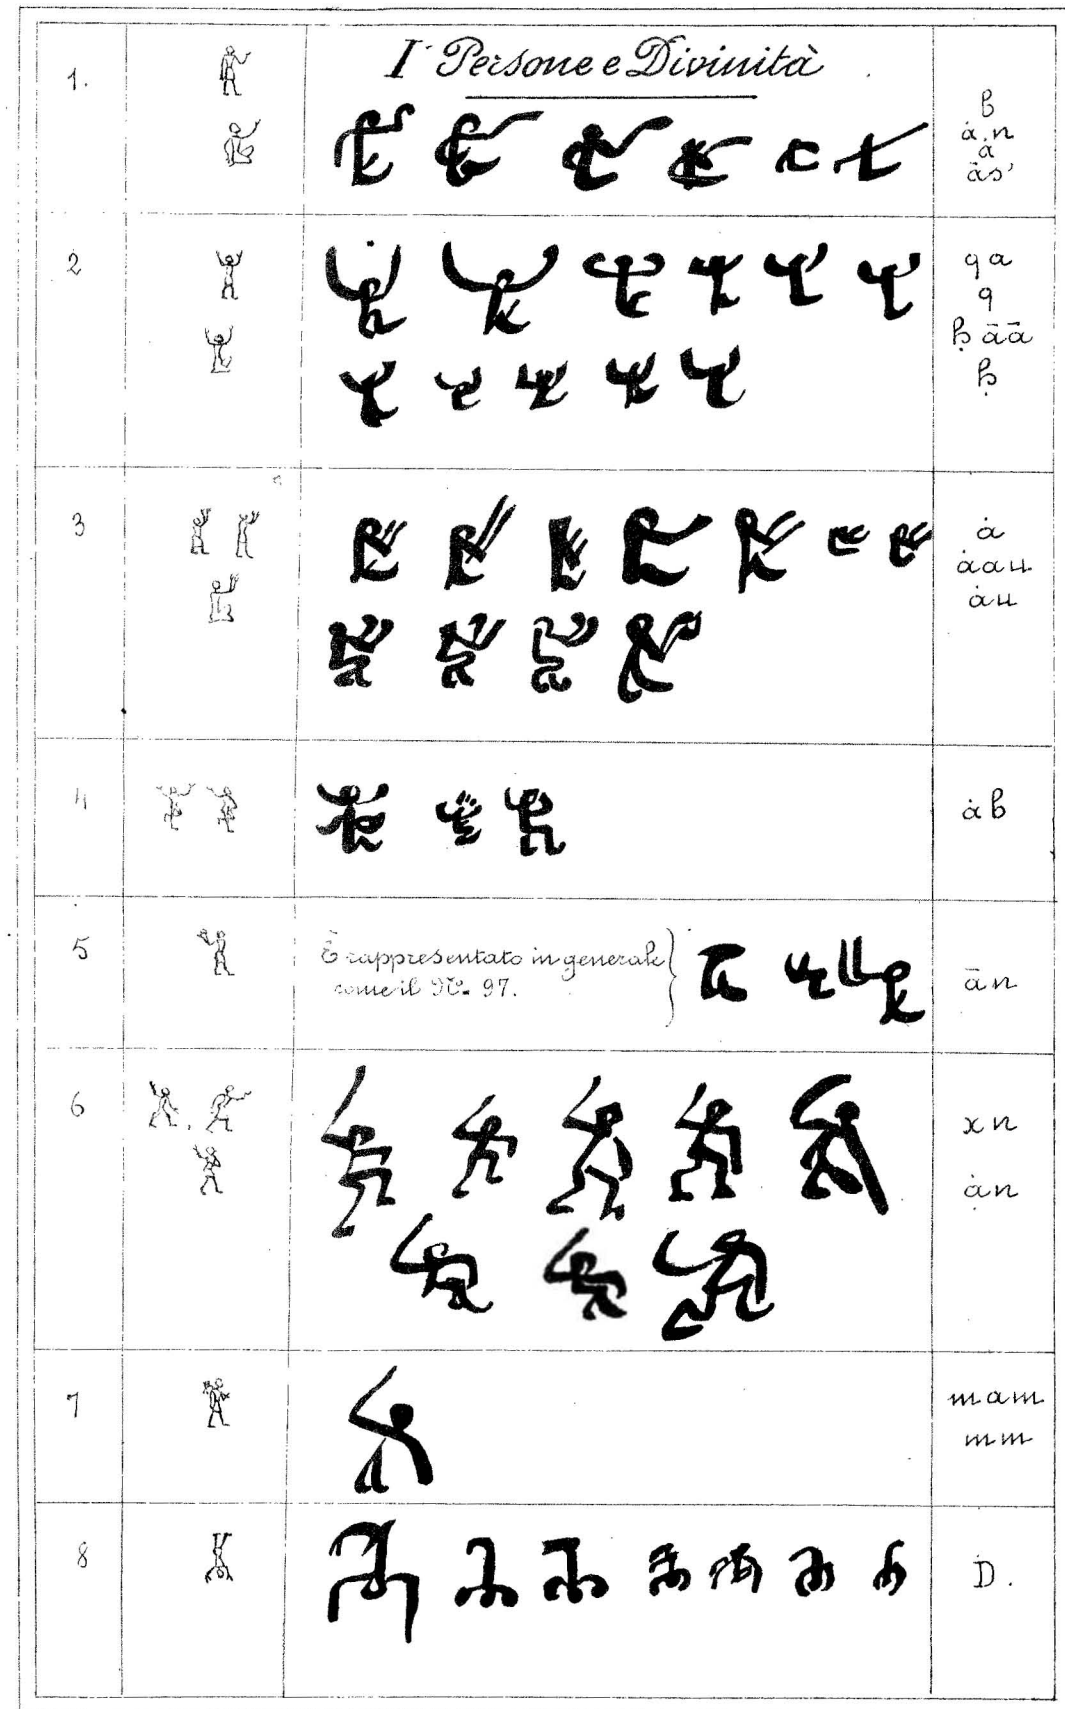 I Persone e Divinità
1.
ẖ
ȧ.n
ȧ
ās'
2
qa
q
ḥāā
ḥ
3
ȧ
ȧau
ȧu
4
ȧb
5
È rappresentato in generale
come il No. 97.
ān
6
xn
ȧn
7
mam
mm
8
D.